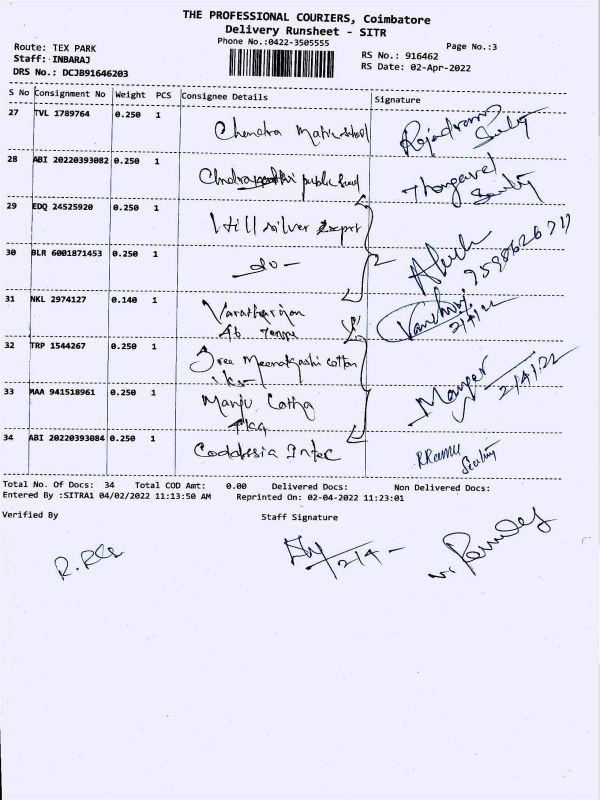 THE PROFESSIONAL COURIERS, Coimbatore
Delivery Runsheet - SITR
Phone No.:0422-3505555
Page No.:3
Route: TEX PARK
Staff: INBARAJ
DRS No.: DCJB91646203
RS No.: 916462
RS Date: 02-Apr-2022
S No Consignment No Weight PCS Consignee Details Signature
27 TVL 1789764 0.250 1 Chendra Matric school
28 ABI 20220393082 0.250 1 public Thangavel
29 EDQ 24525920 0.250 1 Hill silver
30 BLR 6001871453 0.250 1 - do - 2
31 NKL 2974127 0.140 1 Varatharajan
2/4/22
32 TRP 1544267 0.250 1 Sree Meenakashi cotton
33 MAA 941518961 0.250 1 Manju 2/4/22
34 ABI 20220393084 0.250 1 Coddesia Intec
Total No. Of Docs: 34 Total COD Amt: 0.00 Delivered Docs: Non Delivered Docs:
Entered By :SITRA1 04/02/2022 11:13:50 AM Reprinted On: 02-04-2022 11:23:01
Verified By Staff Signature
2/4